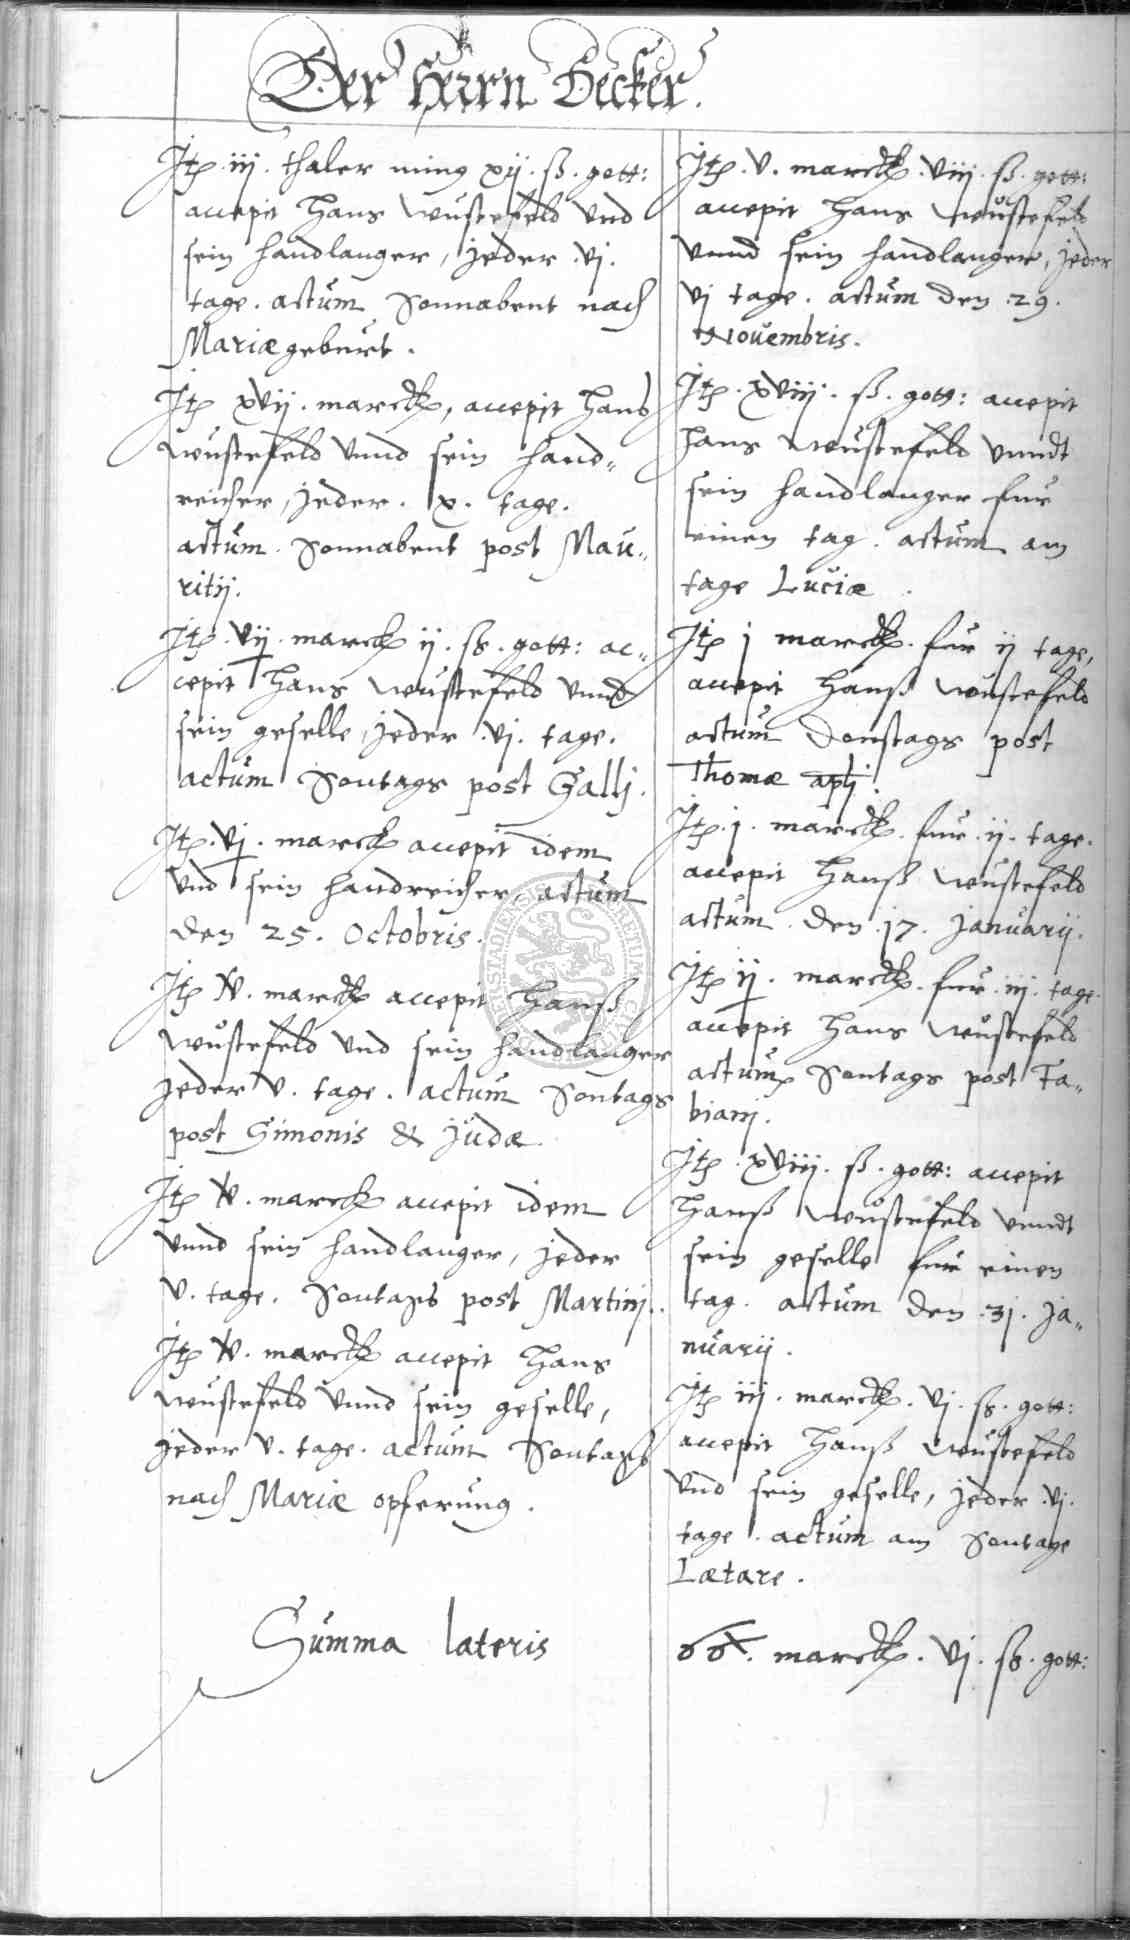 Der Herrn Decker.
Jtp. iij. thaler ming xij. ß. gott:
accepit Hans Wůstefeld vnd
sein handlanger, jeder .vj.
tage. actům Sonnabent nach
Mariæ gebůrt.
Jtp xvij. marck, accepit Hans
Wůstefeld vnnd sein hand„
reicher, jeder. x. tage.
actům. Sonnabent post Maů„
ritij.
Jtp. vij. marck ij. ß. gott: ac„
cepit Hans Wůstefeld vnnd
sein geselle, jeder .vj. tage.
actům Sontags post Galli.
Jtp. vj. marck accepit idem
vnd sein handreicher, actům
den 25. Octobris.
Jtp v. marck accepit Hanß
Wůstefeld vnd sein handlanger
jeder v. tage. actům Sontags
post Simonis & Jůdæ
Jtp v. marck accepit idem
vnnd sein handlanger, jeder
v. tage. Sontags post Martinj.
Jtp v. marck accepit Hans
Wůstefeld vnnd sein geselle,
jeder v. tage. actům Sontags
nach Mariæ opferůng.
Sůmma lateris
Jtp. v. marck. viij. ß. gott:
accepit Hans Wůstefeld
vnnd sein handlanger, jeder
vj tage. actům den .29.
Noůembris.
Jtp. xviij. ß. gott: accepit
Hans Wůstefeld vnndt
sein handlanger fůr
einen tag. actům am
tage Lůciæ.
Jtp j marck. fůr ij tage,
accepit Hanß Wůstefeld
actům Donstags post
Thomæ aplj.
Jtp. j. marck. fůr .ij. tage.
accepit Hanß Wůstefeld
actům. den .17. Janůarij.
Jtp ij. marck. fůr .iij. tage.
accepit Hans Wůstefeld
actům Sontags post Fa„
bianj.
Jtp. xviij. ß. gott: accepit
Hanß Wůstefeld vnndt
sein geselle fůr einen
tag. actům den .31. Ja„
nůarij.
Jtp iij. marck. vj. ß. gott:
accepit Hanß Wůstefeld
vnd sein geselle, jeder .vj.
tage. actům am Sontage
Lætare.
marck. vj. ß. gott: